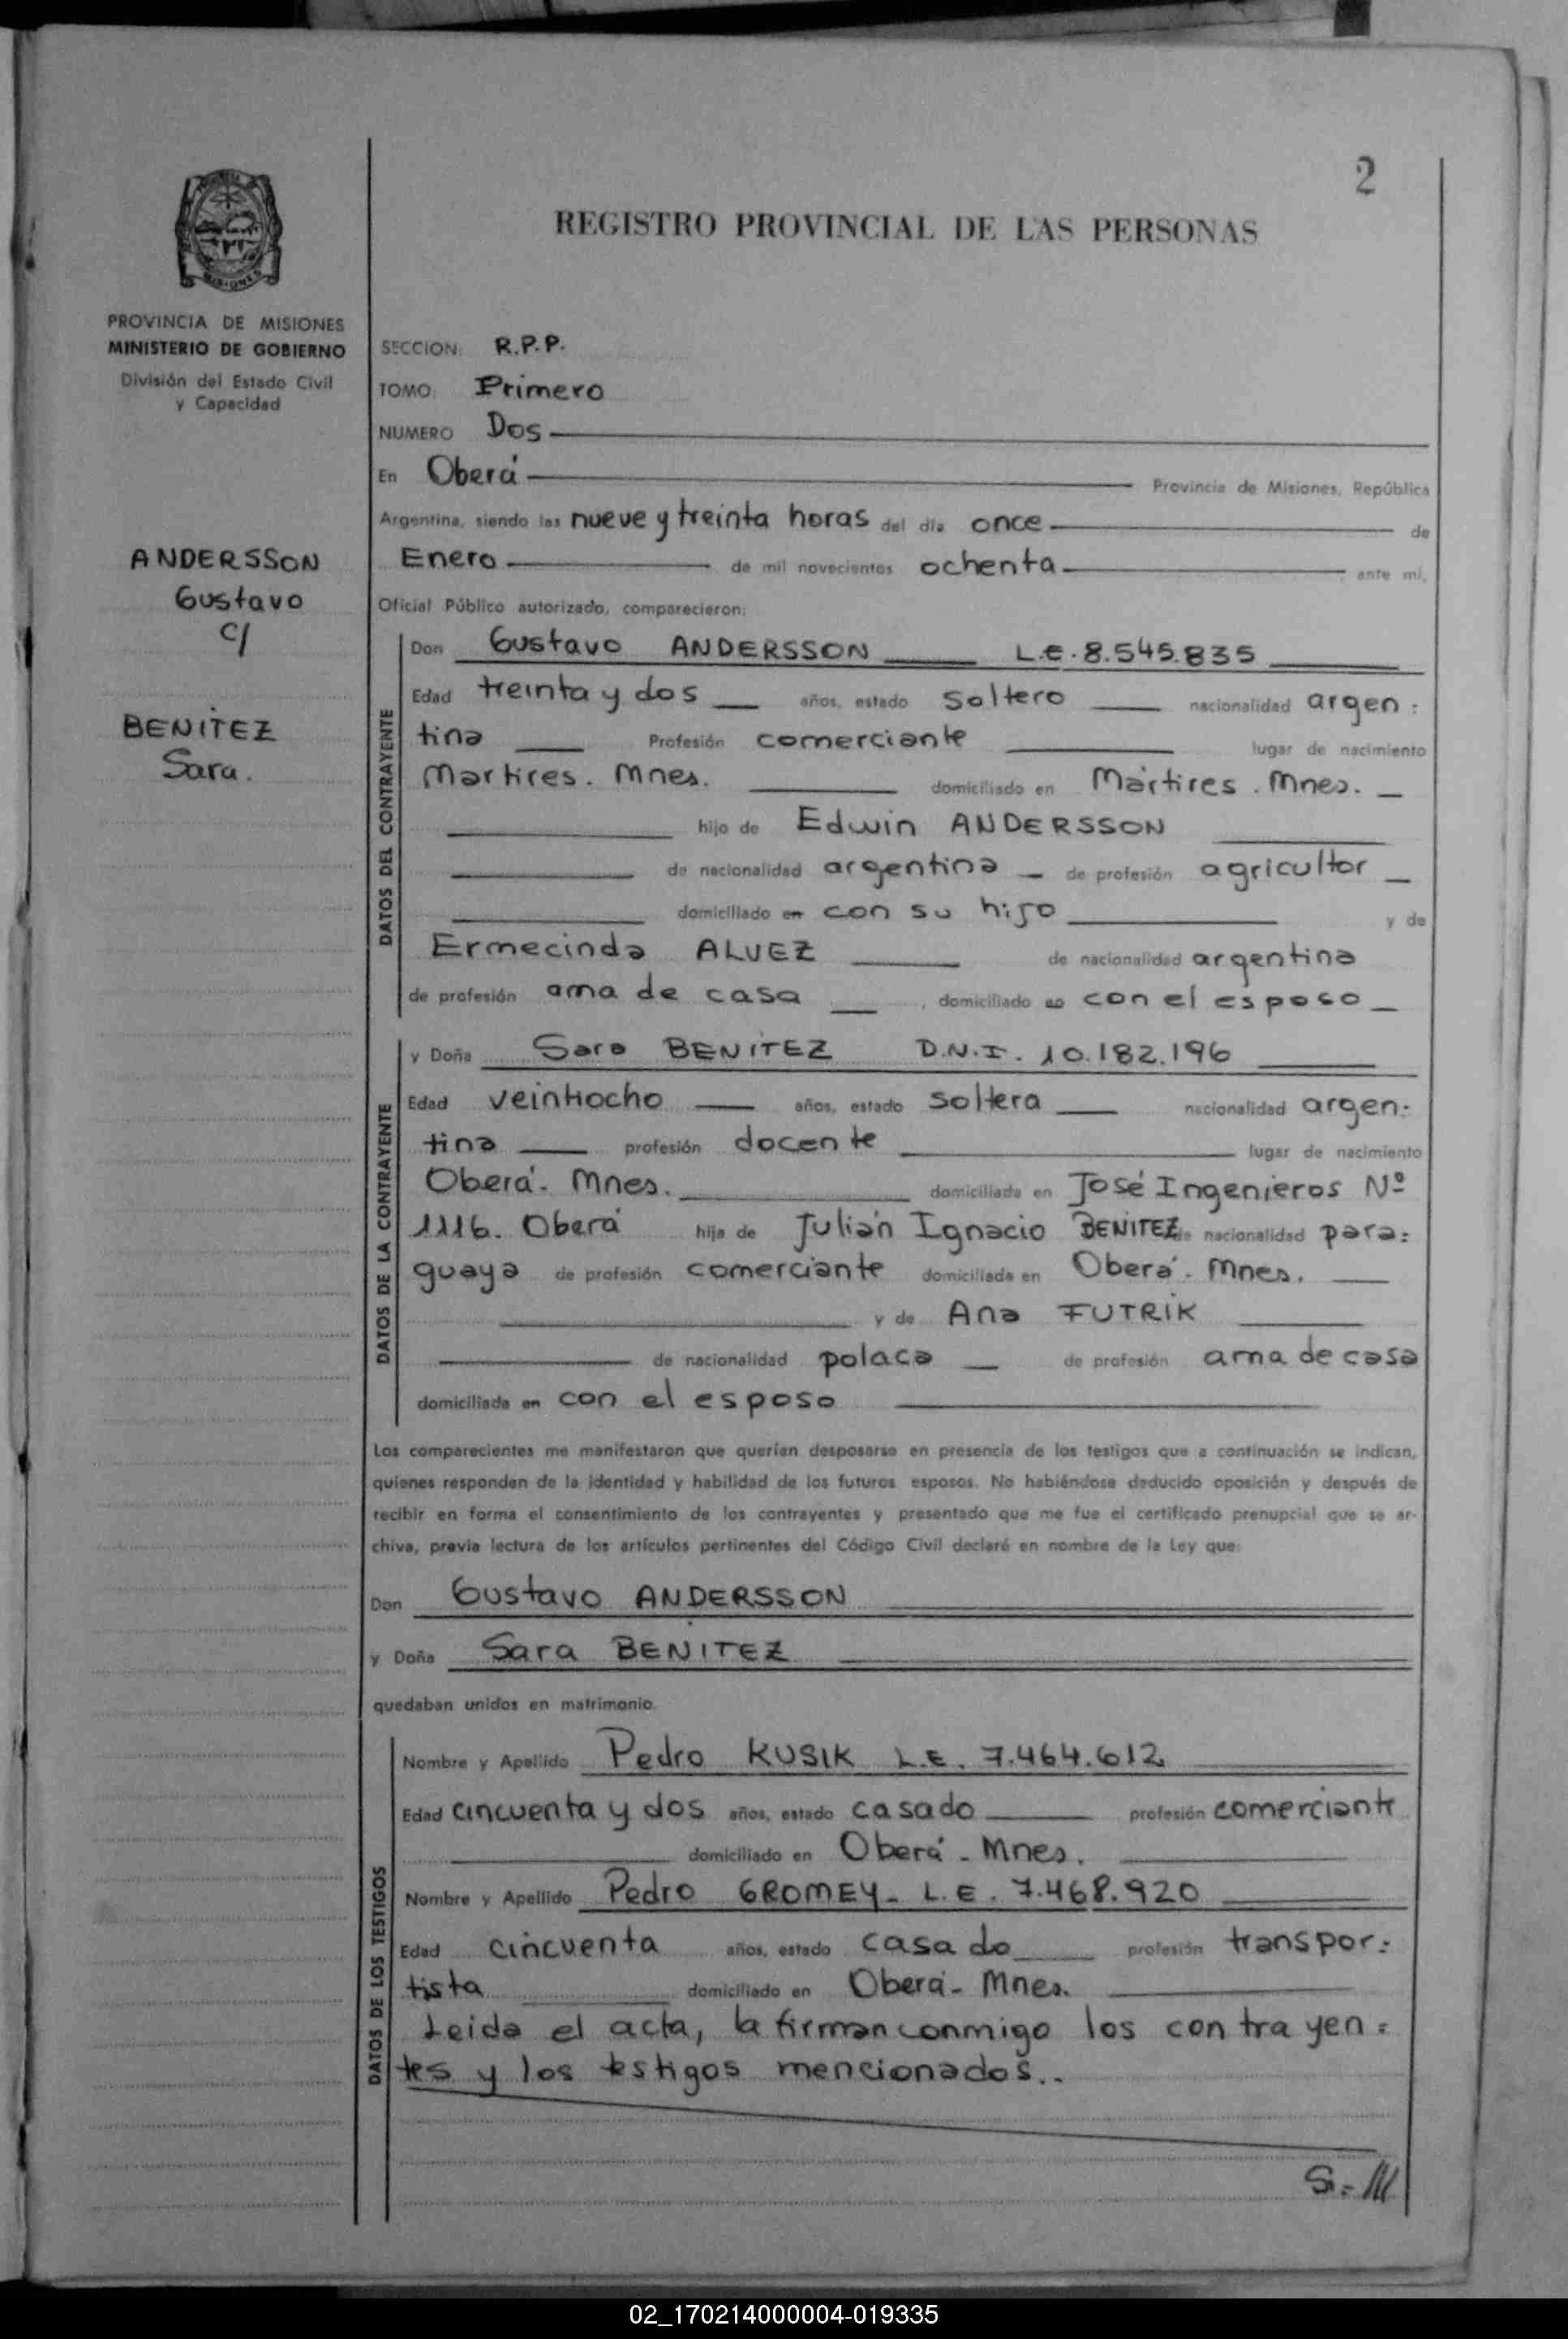 2
REGISTRO PROVINCIAL DE LAS PERSONAS
MISIONES
PROVINCIA DE MISIONES
MINISTERIO DE GOBIERNO
División del Estado Civil
y Capacidad
ANDERSSON
Gustavo
c/
BENITEZ
Sara.
SECCION: R.P.P.
TOMO: Primero
NUMERO Dos
En Oberá Provincia de Misiones, República
Argentina, siendo las nueve y treinta horas del día once de
Enero de mil novecientos ochenta ante mi,
Oficial Público autorizado, comparecieron:
DATOS DEL CONTRAYENTE
Don Gustavo ANDERSSON L.E. 8.545.835
Edad treinta y dos años, estado soltero nacionalidad argen:
tina Profesión comerciante lugar de nacimiento
Martires. Mnes. domiciliado en Mártires. Mnes.
hijo de Edwin ANDERSSON
de nacionalidad argentina de profesión agricultor
domiciliado en con su hijo y de
Ermecinda ALVEZ de nacionalidad argentina
de profesión ama de casa, domiciliado en con el esposo
DATOS DE LA CONTRAYENTE
y Doña Sara BENITEZ D.N.I. 10.182.196
Edad veintiocho años, estado soltera nacionalidad argen:
tina profesión docente lugar de nacimiento
Oberá. Mnes. domiciliada en José Ingenieros Nº
1116. Oberá hija de Julián Ignacio BENITEZ de nacionalidad para:
guaya de profesión comerciante domiciliada en Oberá. Mnes.
y de Ana FUTRIK
de nacionalidad polaca de profesión ama de casa
domiciliada en con el esposo
Los comparecientes me manifestaron que querían desposarse en presencia de los testigos que a continuación se indican,
quienes responden de la identidad y habilidad de los futuros esposos. No habiéndose deducido oposición y después de
recibir en forma el consentimiento de los contrayentes y presentado que me fue el certificado prenupcial que se ar-
chiva, previa lectura de los artículos pertinentes del Código Civil declaré en nombre de la Ley que:
Don Gustavo ANDERSSON
y Doña Sara BENITEZ
quedaban unidos en matrimonio.
DATOS DE LOS TESTIGOS
Nombre y Apellido Pedro KUSIK L.E. 7.464.612
Edad cincuenta y dos años, estado casado profesión comerciante
domiciliado en Oberá - Mnes.
Nombre y Apellido Pedro GROMEY - L.E. 7.468.920
Edad cincuenta años, estado casado profesión transpor:
tista domiciliado en Oberá - Mnes.
Leida el acta, la firman conmigo los contrayen:
tes y los testigos mencionados..
02_170214000004-019335